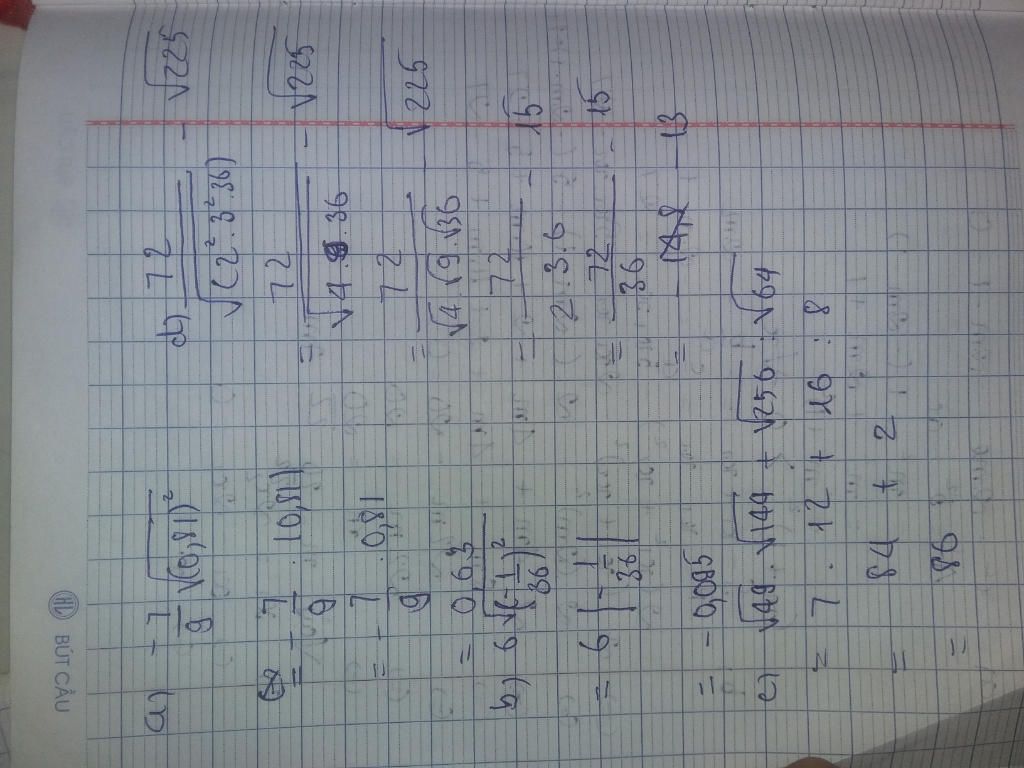 BÚT CẦU
a) - 7/9 √(0,81)²
= - 7/9 . |0,81|
= - 7/9 . 0,81
= 0,63
b) 6 √(-1/36)²
= 6 |-1/36|
= - 0,095
c) √49 . √144 + √256 : √64
= 7 . 12 + 16 : 8
= 84 + 2
= 86
d) 72/√(2².3².36) - √225
= 72/√4.9.36 - √225
= 72/√4 √9.√36 - √225
= 72/2.3.6 - 15
= 72/36 - 15
= - 13